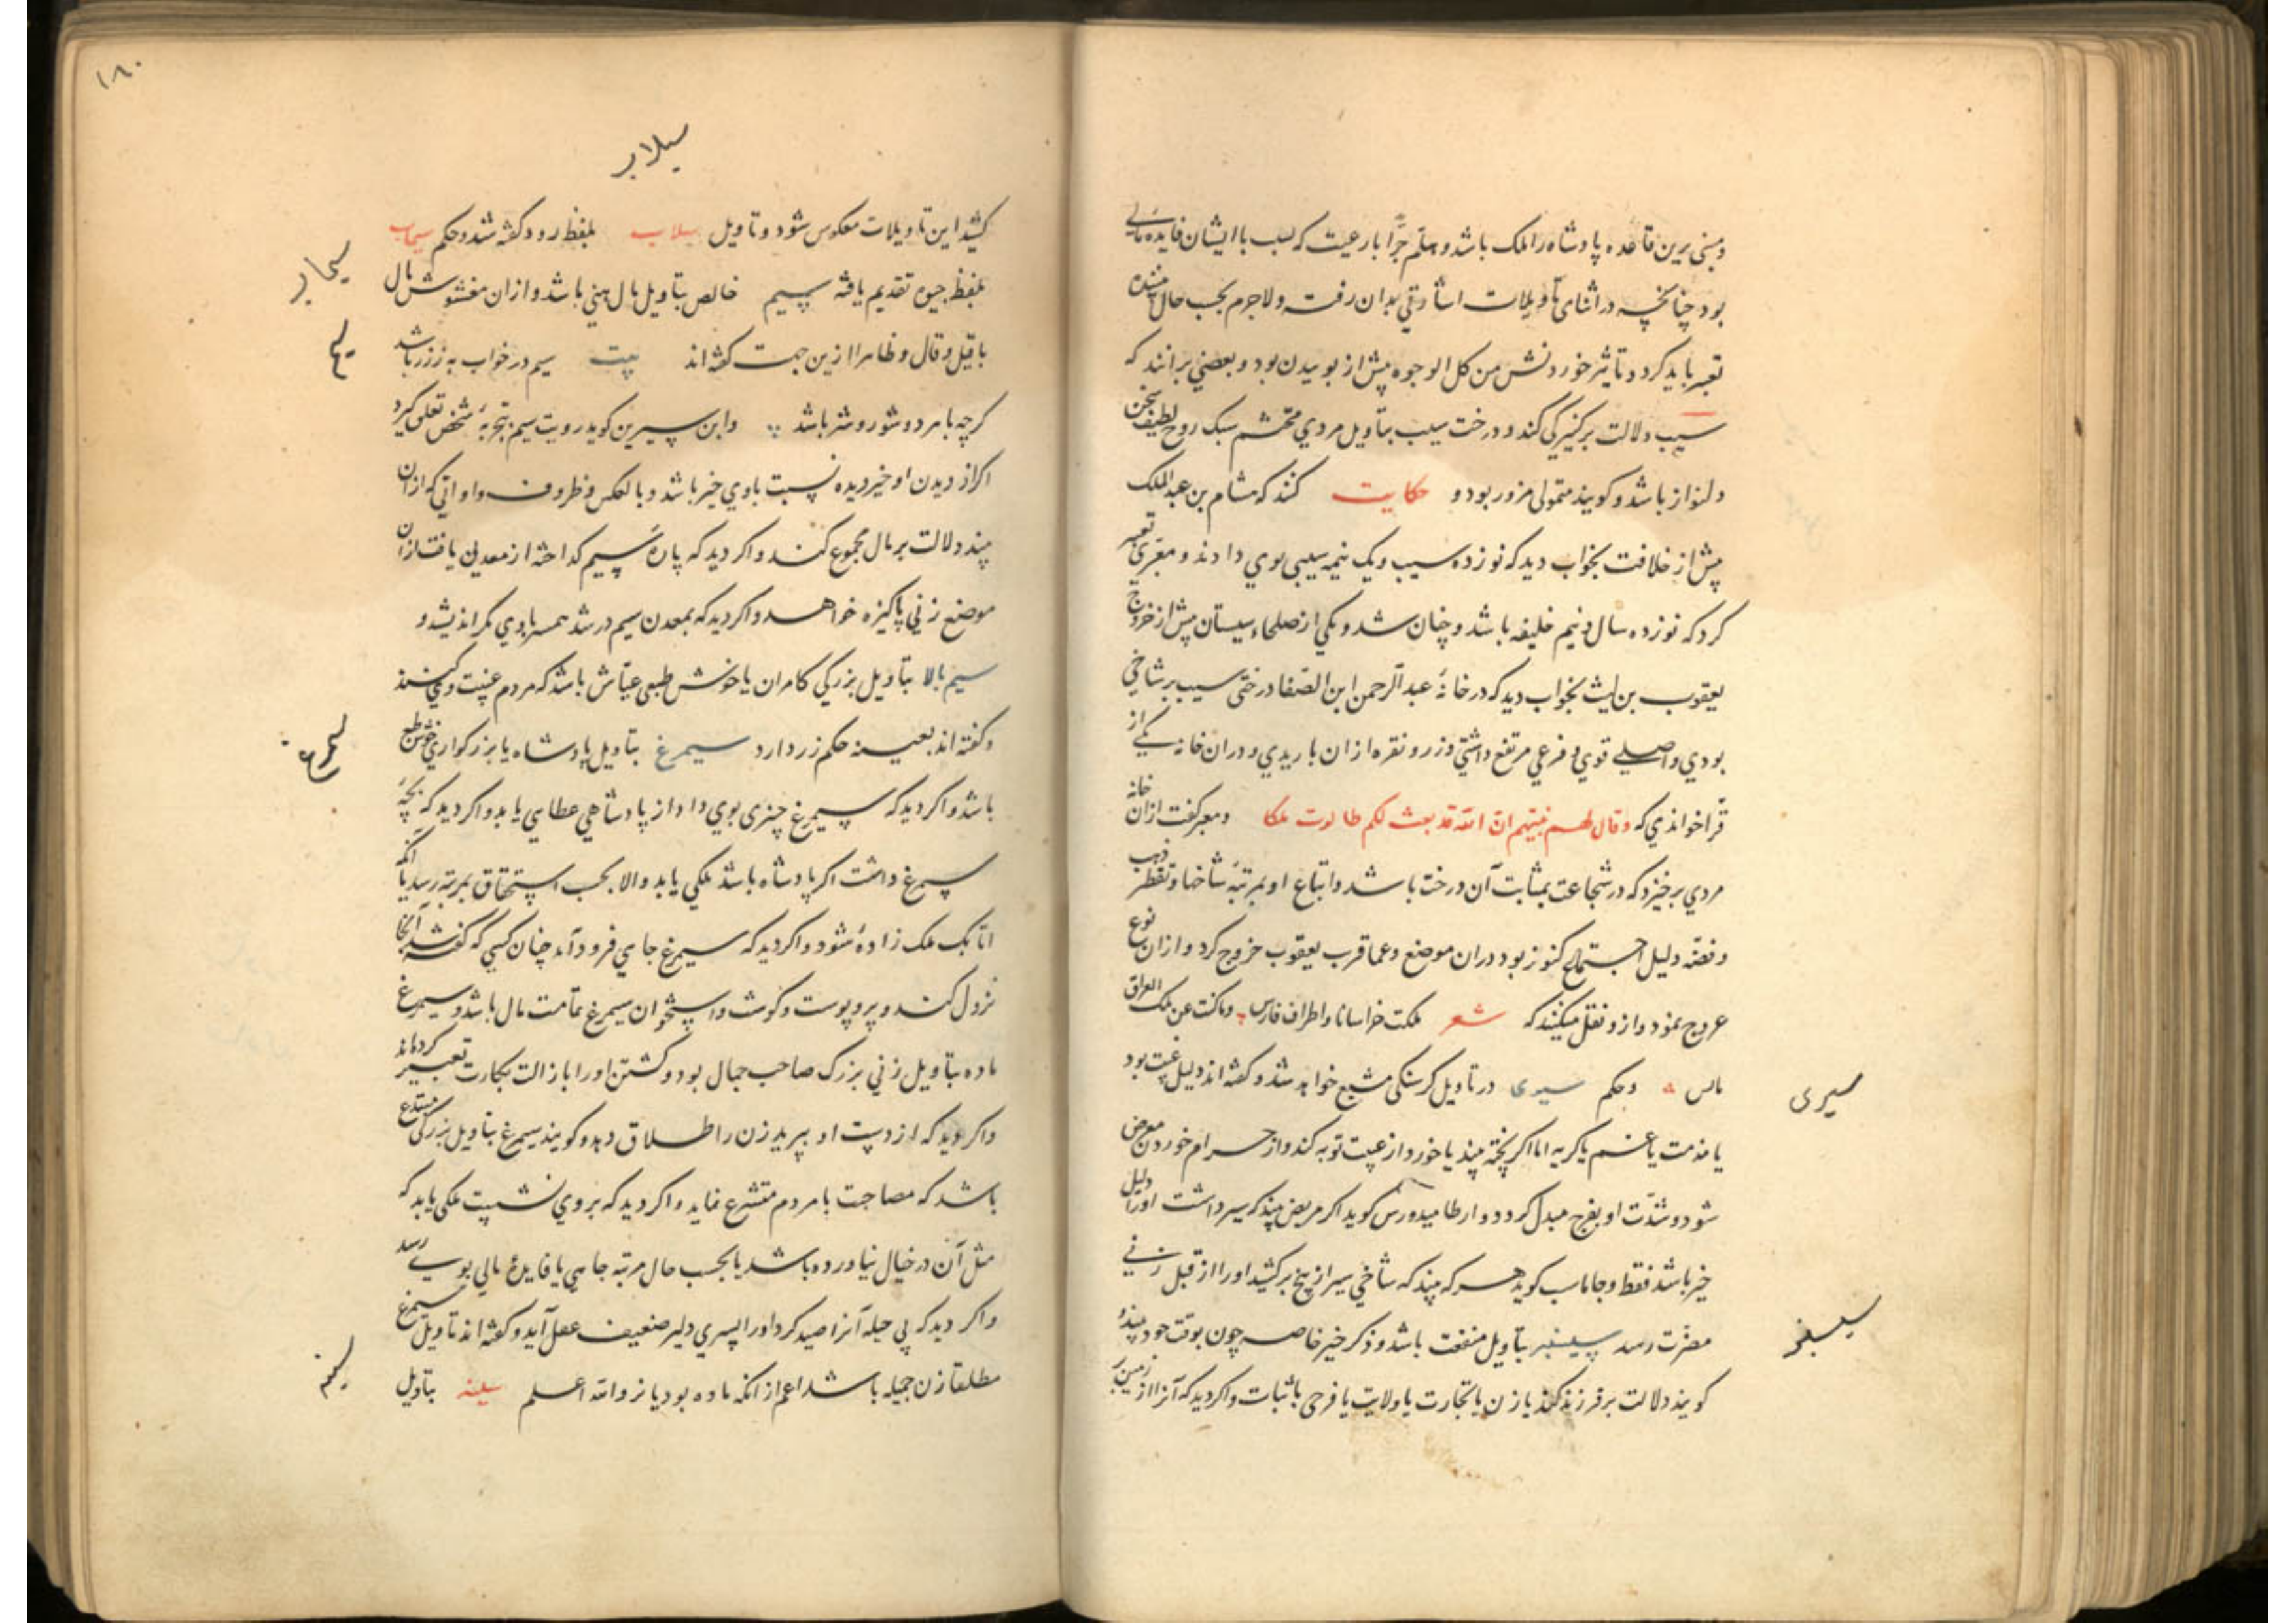 و مبنی برین قاعده پادشاه را ملک باشد و هلم جرّا با رعیت که لسب با ایشان فایده مالی
بود چنانچه در اثنای تاویلات اشارتی بدان رفت و لاجرم بحسب حال بیننده
تعبیر باید کرد و تاثیر خوردنش من کل الوجوه بیش از بوییدن بود و بعضی برانند که
سیب دلالت بر کنیزکی کند و درخت سیب بتاویل مردی محتشم سبک روح لطیف سخن
دلنواز باشد و کویند متمولی مزور بود و حکایت کنند که هشام بن عبد الملک
پیش از خلافت بخواب دید که نوزده سیب و یک نیمه سیبی بوی دادند و معبری تعبیر
کرد که نوزده سال و نیم خلیفه باشد و چنان شد و یکی از صلحاء سیستان پیش از خروج
یعقوب بن لیث بخواب دید که در خانهٔ عبد الرحمن ابن الصفا درختی سیب بر شاخی
بودی و اصلی قوی و فرعی مرتفع داشتی و زر و نقره ازان باریدی و دران خانه یکی از
قرّا خواندی که و قال لهم نبیهم انّ الله قد بعث لکم طالوت ملکا و معبر کفت ازان خانه
مردی برخیزد که در شجاعت بمثابت آن درخت باشد و اتباع او بمرتبهٔ شاخها و تقطر ذهب
و فضّه دلیل اجتماع کنوز بود دران موضع و عما قرب یعقوب خروج کرد و ازان نوع
عروج نمود و ازو نقل میکنند که شعر ملکت خراسانا و اطراف فارس و ماکنت عن ملک العراق
باس و حکم سیری در تاویل کرسنکی مشبع خواهد شد و کفته اند دلیل غیبت بود
یا مذمت یا غم یا کریه اما اکر پخته بیند یا خورد از غیبت توبه کند و از حرام خوردن معرض
شود و شدّت او بفرج مبدل کردد و ارطامیدورس کوید اکر مریض بیند که سیر داشت او را دلیل
خیر باشد فقط و جاماسب کوید هرکه بیند که شاخی سیر از بیخ برکشید او را از قبل زنی
مضرّت رسد سیسنبر بتاویل منفعت باشد و ذکر خیر خاصه چون بوقت خود بیند و
کویند دلالت بر فرزند کند یا زن یا تجارت یا ولایت یا فرحی باثبات و اکر دید که آنرا از زمین بر
سیری
سیسنبر
۱۸۰
سیلاب
کشید این تاویلات معکوس شود و تاویل سیلاب بلفظ رود کفته شد و حکم سیماب
بلفظ جیوه تقدیم یافته سیم خالص بتاویل مال هنی باشد و ازان مغشوش مال
با قیل و قال و ظاهرا ازین جهت کفته اند بیت سیم در خواب به ز زر باشد
کرچه با مرد و شو رو شر باشد و ابن سیرین کوید رویت سیم بتجربهٔ شخص تعلق کیرد
اکر از دیدن او خیر دیده نسبت باوی خیر باشد و بالعکس و ظروف و اوانی که ازان
بیند دلالت بر مال مجموع کند و اکر دید که پارهٔ سیم کداخته از معدن یافت ازان
موضع زنی پاکیزه خواهد و اکر دید که بمعدن سیم در شد همسر باوی مکر اندیشد و
سیم بالا بتاویل بزرکی کامران یا خوش طبعی عیّاش باشد که مردم غیبت وی کنند
و کفته اند بعینه حکم زر دارد سیمرغ بتاویل پادشاه یا بزرکواری خوش طبع
باشد و اکر دید که سیمرغ چیزی بوی داد از پادشاهی عطایی یابد و اکر دید که بچهٔ
سیمرغ داشت اکر پادشاه باشد ملکی یابد و الا بحسب استحقاق بمرتبه رسد یا انکه
اتابک ملک زادهٔ شود و اکر دید که سیمرغ جایی فرود آمد چنان کسی که کفته شد آنجا
نزول کند و پر و پوست و کوشت و استخوان سیمرغ تمامت مال باشد و سیمرغ
ماده بتاویل زنی بزرک صاحب جمال بود و کشتن او را با زالت بکارت تعبیر کرده اند
و اکر دید که از دست او بپرید زن را طلاق دهد و کویند سیمرغ بتاویل بزرکی مبتدع
باشد که مصاحبت با مردم متشرع نماید و اکر دید که بر وی نشست ملکی یابد که
مثل آن در خیال نیاورده باشد یا بحسب حال مرتبه جاهی یا فایدهٔ مالی بوی رسد
و اکر دید که بی حیله آنرا صید کرد او را پسری دلیر ضعیف عقل آید و کفته اند تاویل سیمرغ
مطلقا زن جمیله باشد اعم از انکه ماده بود یا نر و الله اعلم سینه بتاویل
سیماب
سیم
سیمرغ
سینه